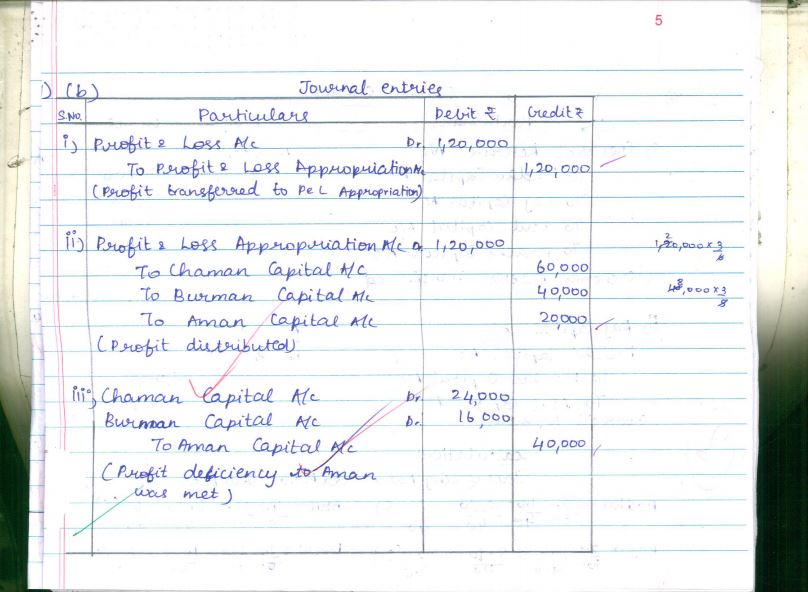 5
1) (b) Journal entries
S.No. Particulars Debit ₹ Credit ₹
i) Profit & Loss A/c Dr. 1,20,000
To Profit & Loss Appropriation A/c 1,20,000
(Profit transferred to P&L Appropriation)
ii) Profit & Loss Appropriation A/c Dr 1,20,000 1,20,000 × 3/6
To Chaman Capital A/c 60,000
To Burman Capital A/c 40,000 × 3/5
To Aman Capital A/c 20,000
(Profit distributed)
iii) Chaman Capital A/c Dr. 24,000
Burman Capital A/c Dr. 16,000
To Aman Capital A/c 40,000
(Profit deficiency to Aman
was met)